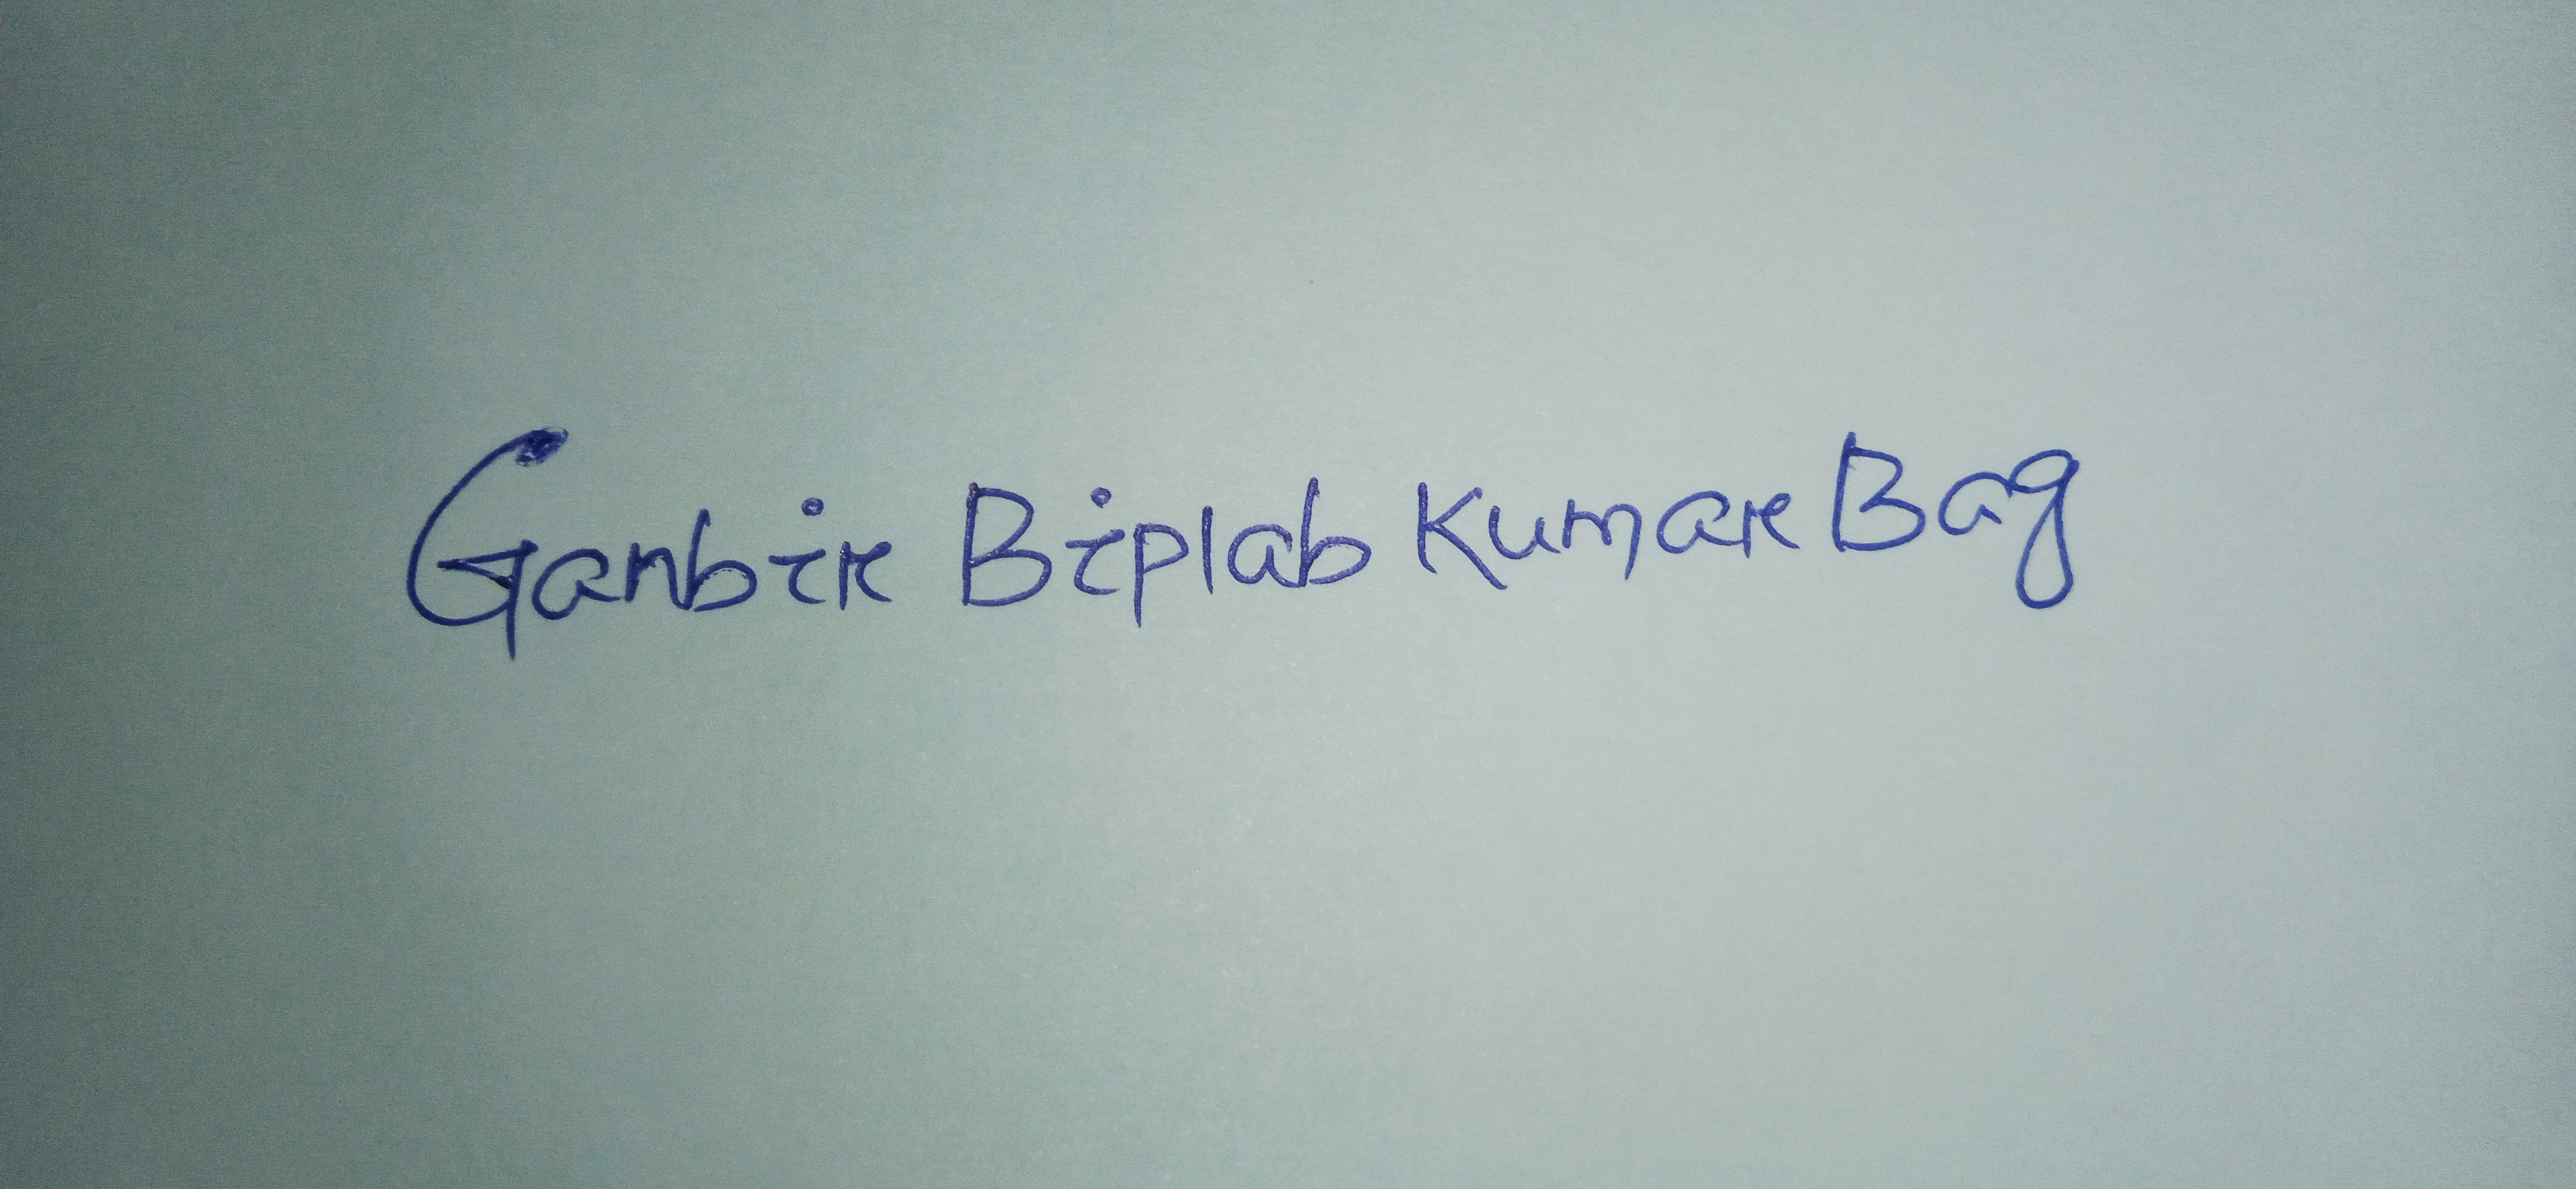 Ganbir Biplab Kumar Bag